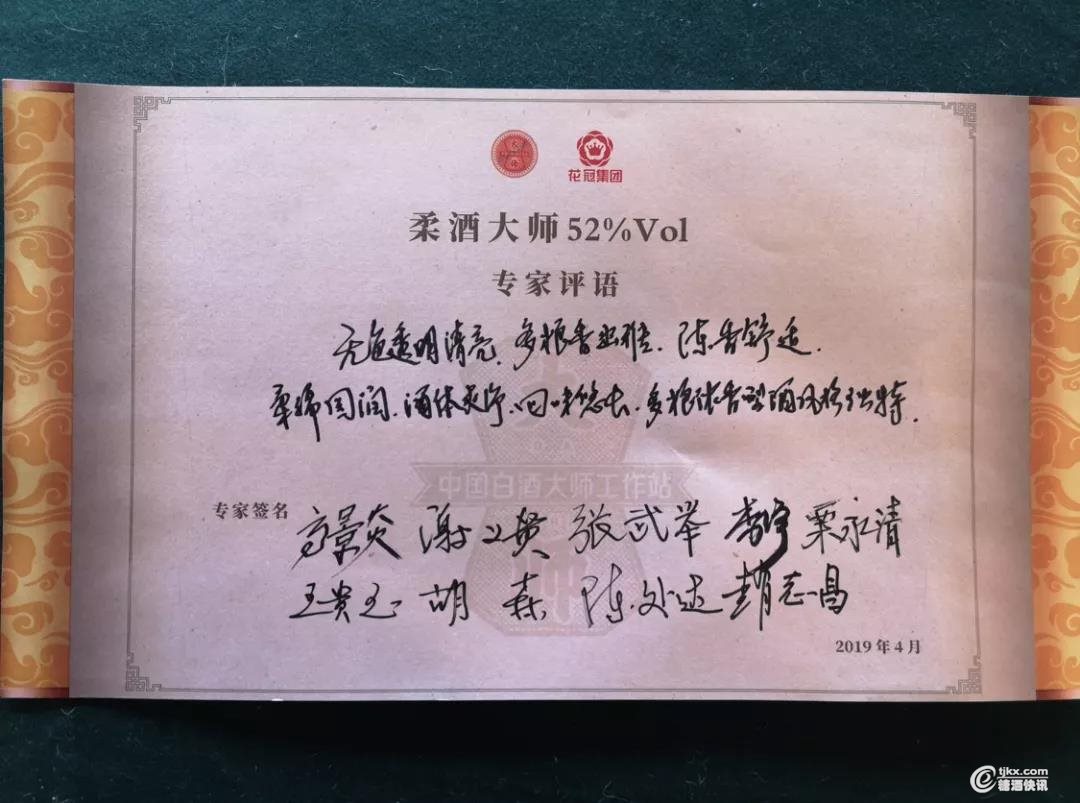 花冠集团
柔酒大师 52%Vol
专家评语
无色透明清亮、多粮香幽雅、陈香舒适、
柔绵圆润、酒体爽净、回味悠长、多粮浓香型酒风格独特。
中国白酒大师工作站
专家签名
高景炎 谢义贵 张武举 栗永清
王贵玉 胡森 陈处达 赵志昌
2019年4月
tjkx.com
糖酒快讯